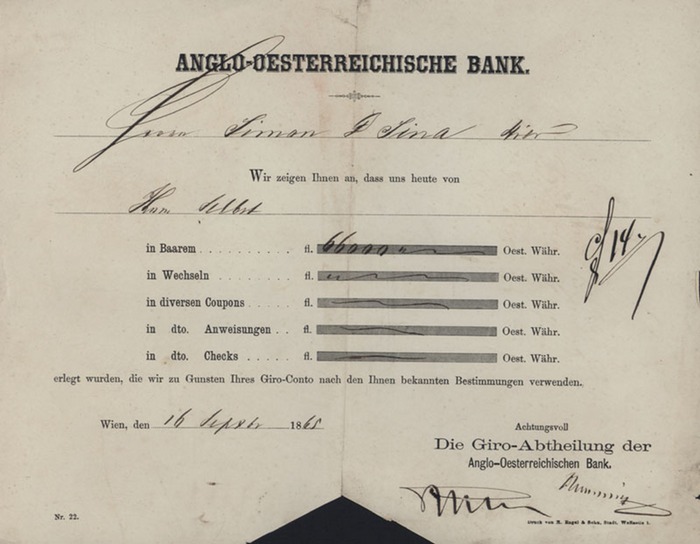 ANGLO-OESTERREICHISCHE BANK.
Herrn Simon G Sina hier
Wir zeigen Ihnen an, dass uns heute von
Ihnen Selbst
in Baarem . . . . . . . . . . fl. 66000 " Oest. Währ.
in Wechseln . . . . . . . . fl. " Oest. Währ.
in diversen Coupons . . . . . fl. Oest. Währ.
in dto. Anweisungen . . fl. Oest. Währ.
in dto. Checks . . . . . fl. Oest. Währ.
14
erlegt wurden, die wir zu Gunsten Ihres Giro-Conto nach den Ihnen bekannten Bestimmungen verwenden.
Wien, den 16 Septber 1865
Achtungsvoll
Die Giro-Abtheilung der
Anglo-Oesterreichischen Bank.
Nr. 22.
Druck von H. Engel & Sohn, Stadt, Wallzeile 1.